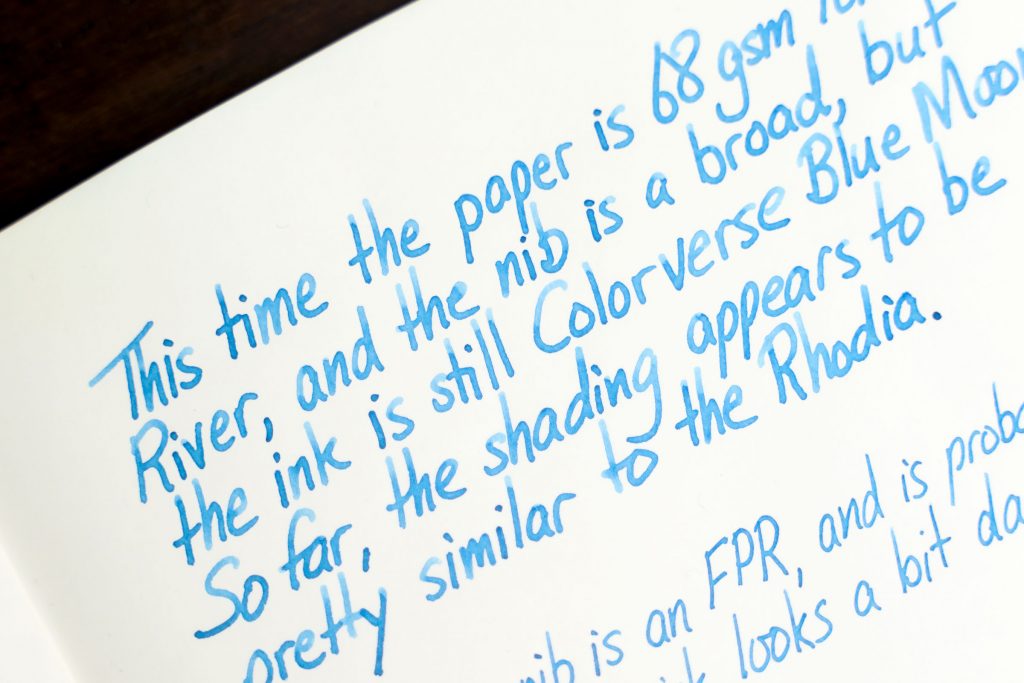 This time the paper is 68 gsm
River, and the nib is a broad, but
the ink is still Colorverse Blue Moon
So far, the shading appears to be
pretty similar to the Rhodia.
nib is an FPR, and is
looks a bit